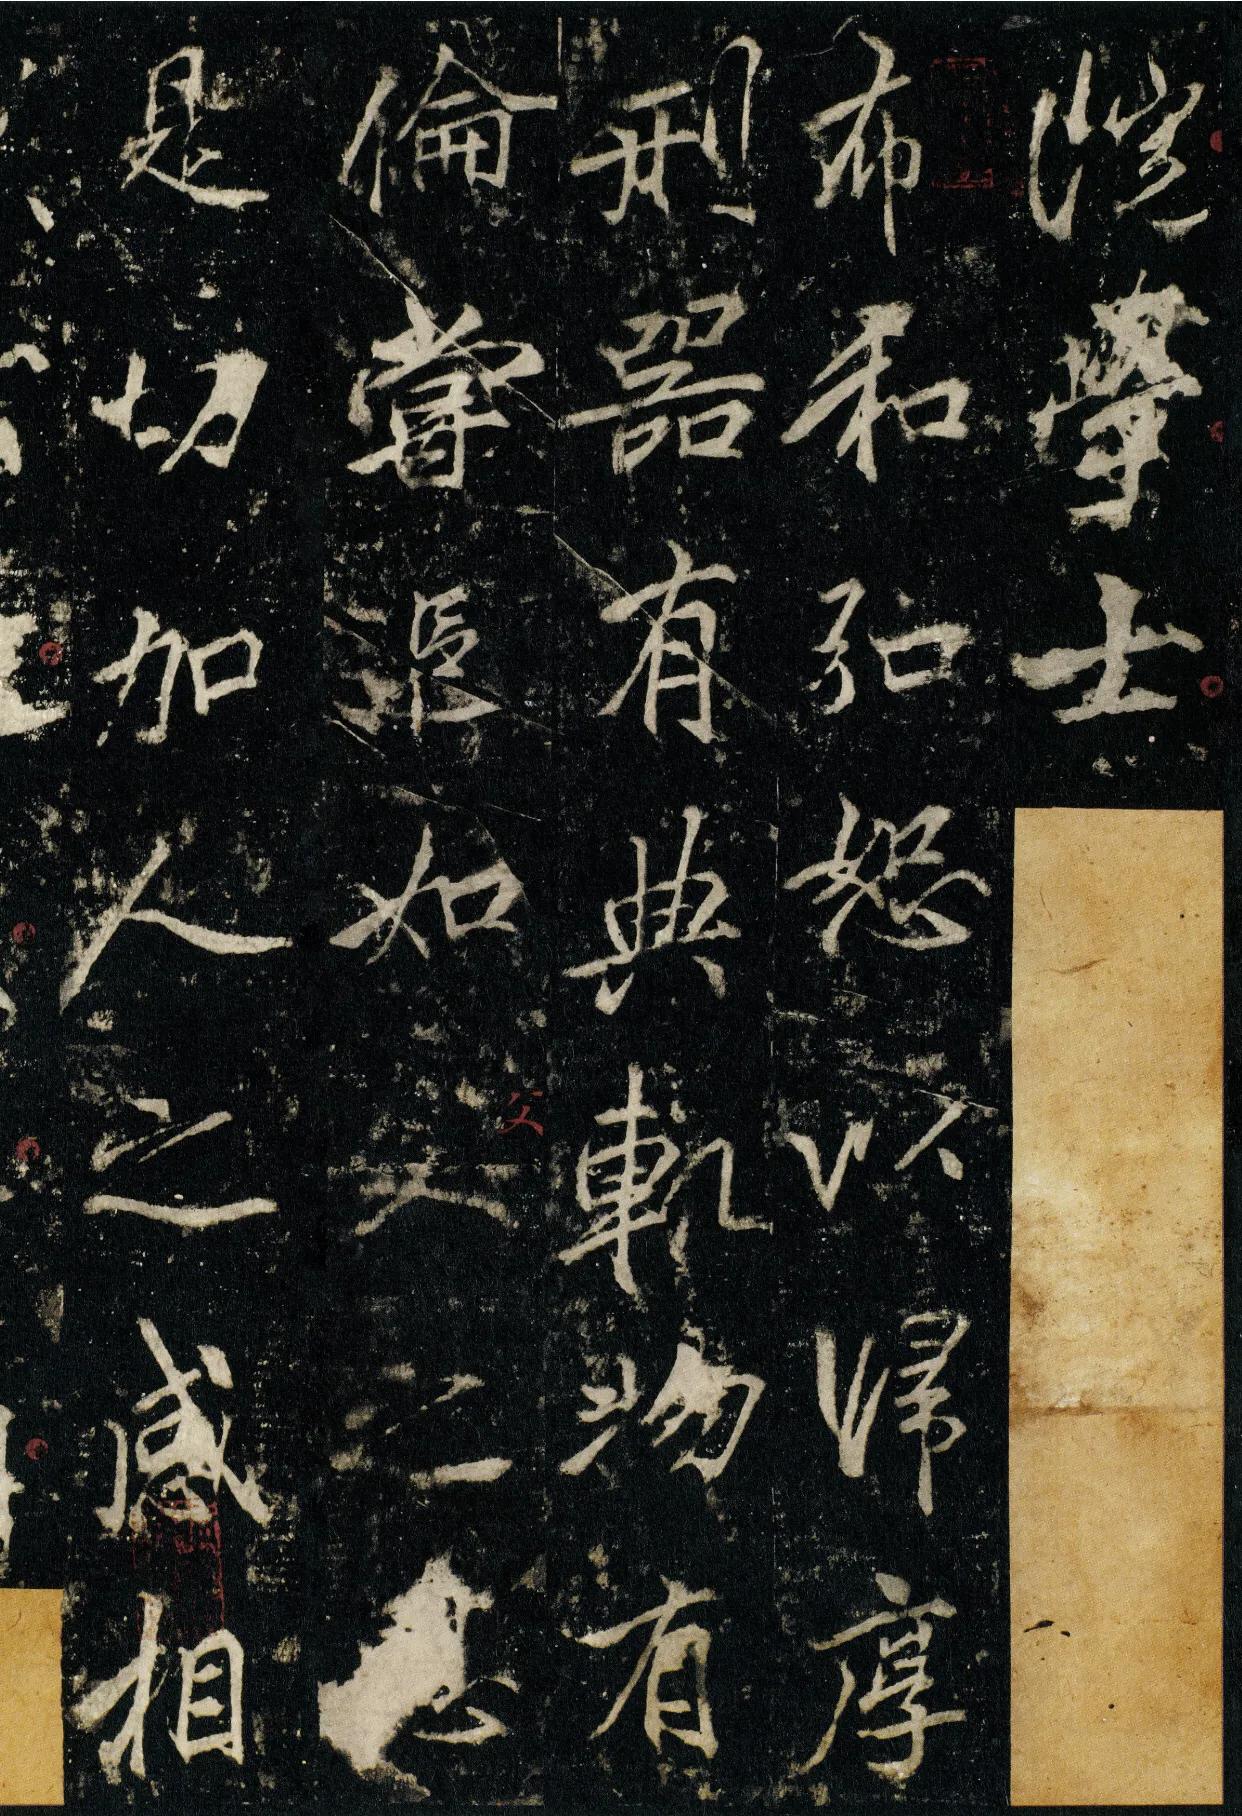 學士
布和弘恕以歸厚
刑器有典軌物有
倫嘗如父之
是切加人之感相